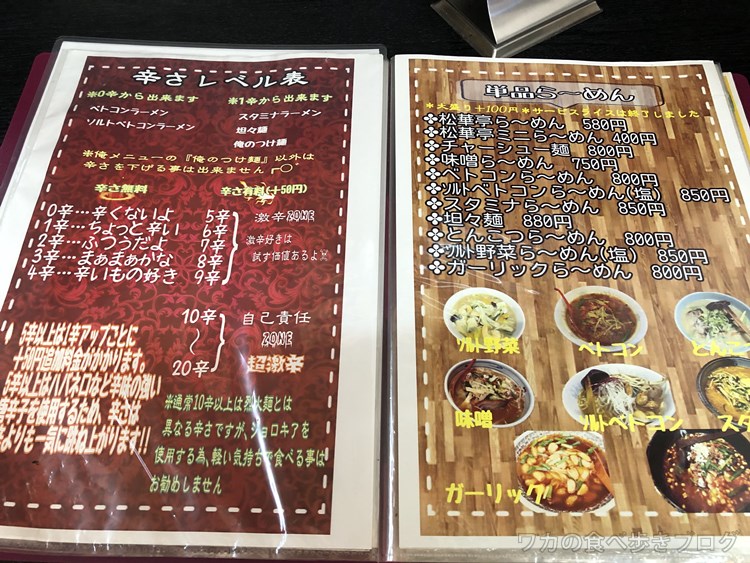 辛さレベル表
※0辛から出来ます
ベトコンラーメン
ソルトベトコンラーメン
※1辛から出来ます
スタミナラーメン
坦々麺
俺のつけ麺
※俺メニューの『俺のつけ麺』以外は
辛さを下げる事は出来ません
辛さ無料
0辛…辛くないよ
1辛…ちょっと辛い
2辛…ふつうだよ
3辛…まぁまぁかな
4辛…辛いもの好き
辛さ有料(+50円)
5辛
6辛
7辛
8辛
9辛
激辛ZONE
激辛好きは
試す価値あるよ
10辛
〜
20辛
自己責任
ZONE
超激辛
5辛以上は1辛アップごとに
+50円追加料金がかかります。
5辛以上はハバネロなど辛味の強い
唐辛子を使用するため、辛さは
よりも一気に跳ね上がります!!
※通常10辛以上は烈火麺とは
異なる辛さですが、ジョロキアを
使用する為、軽い気持ちで食べる事は
お勧めしません
単品ら〜めん
*大盛り+100円*サービスライスは終了しました
❖松華亭ら〜めん 580円
❖松華亭ミニら〜めん 400円
❖チャーシュー麺 800円
❖味噌ら〜めん 750円
❖ベトコンら〜めん 800円
❖ソルトベトコンら〜めん(塩) 850円
❖スタミナら〜めん 850円
❖坦々麺 880円
❖とんこつら〜めん 800円
❖ソルト野菜ら〜めん(塩) 850円
❖ガーリックら〜めん 800円
ソルト野菜
ベトコン
とんこ
味噌
ソルトベトコン
スタ
ガーリック
ワカの食べ歩きブログ